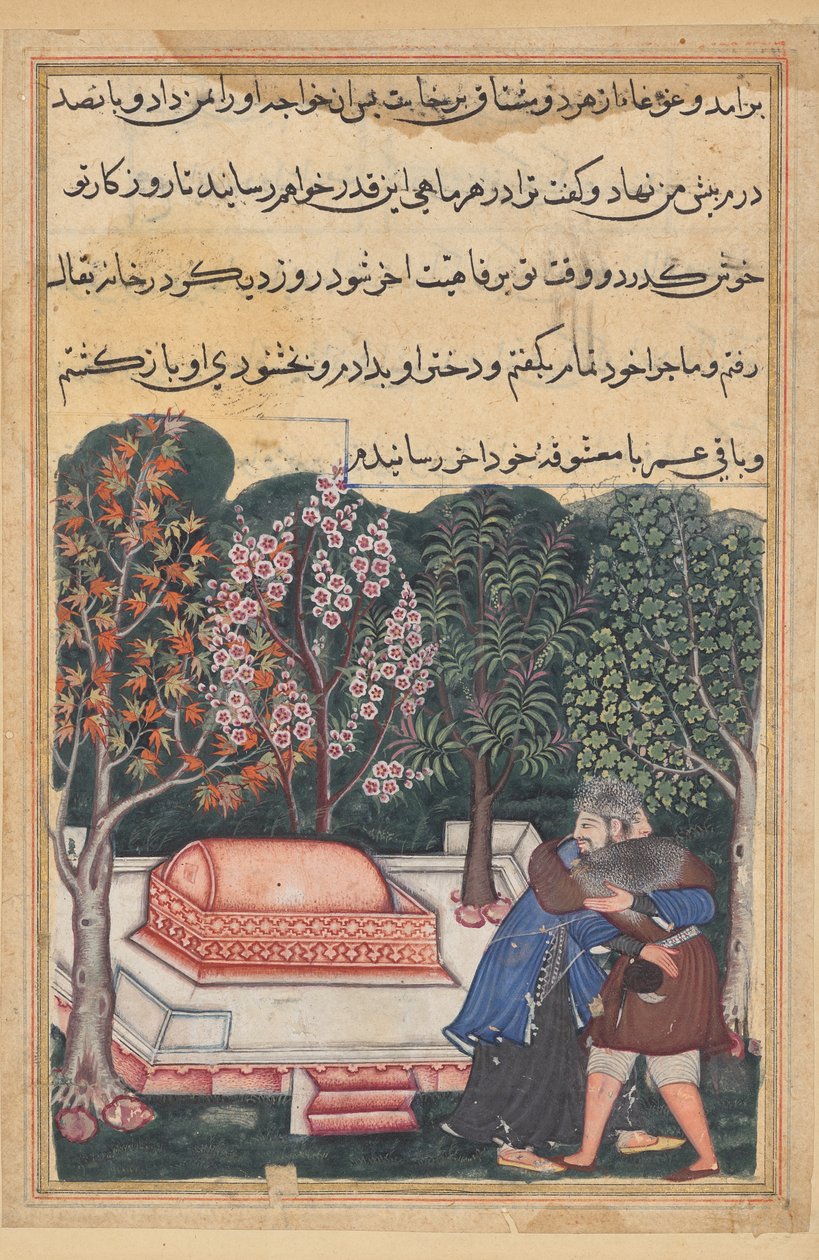 برامد و غوغا از هر دو مشتاق برخاست پس ان خواجه او را بمن داد و پانصد
درم پیش من نهاد و کفت ترا در هر ماهی این قدر خواهم رسانید تا روزکار تو
خوش کذرد و وقت تو برفاهیّت اخر شود روز دیکر در خانه بقال
رفتم و ماجرا خود تمام بکفتم و دختر او بدادم و بخشنودی او باز کشتم
و باقی عمر با معشوقهٔ خود اخر رسانیدم